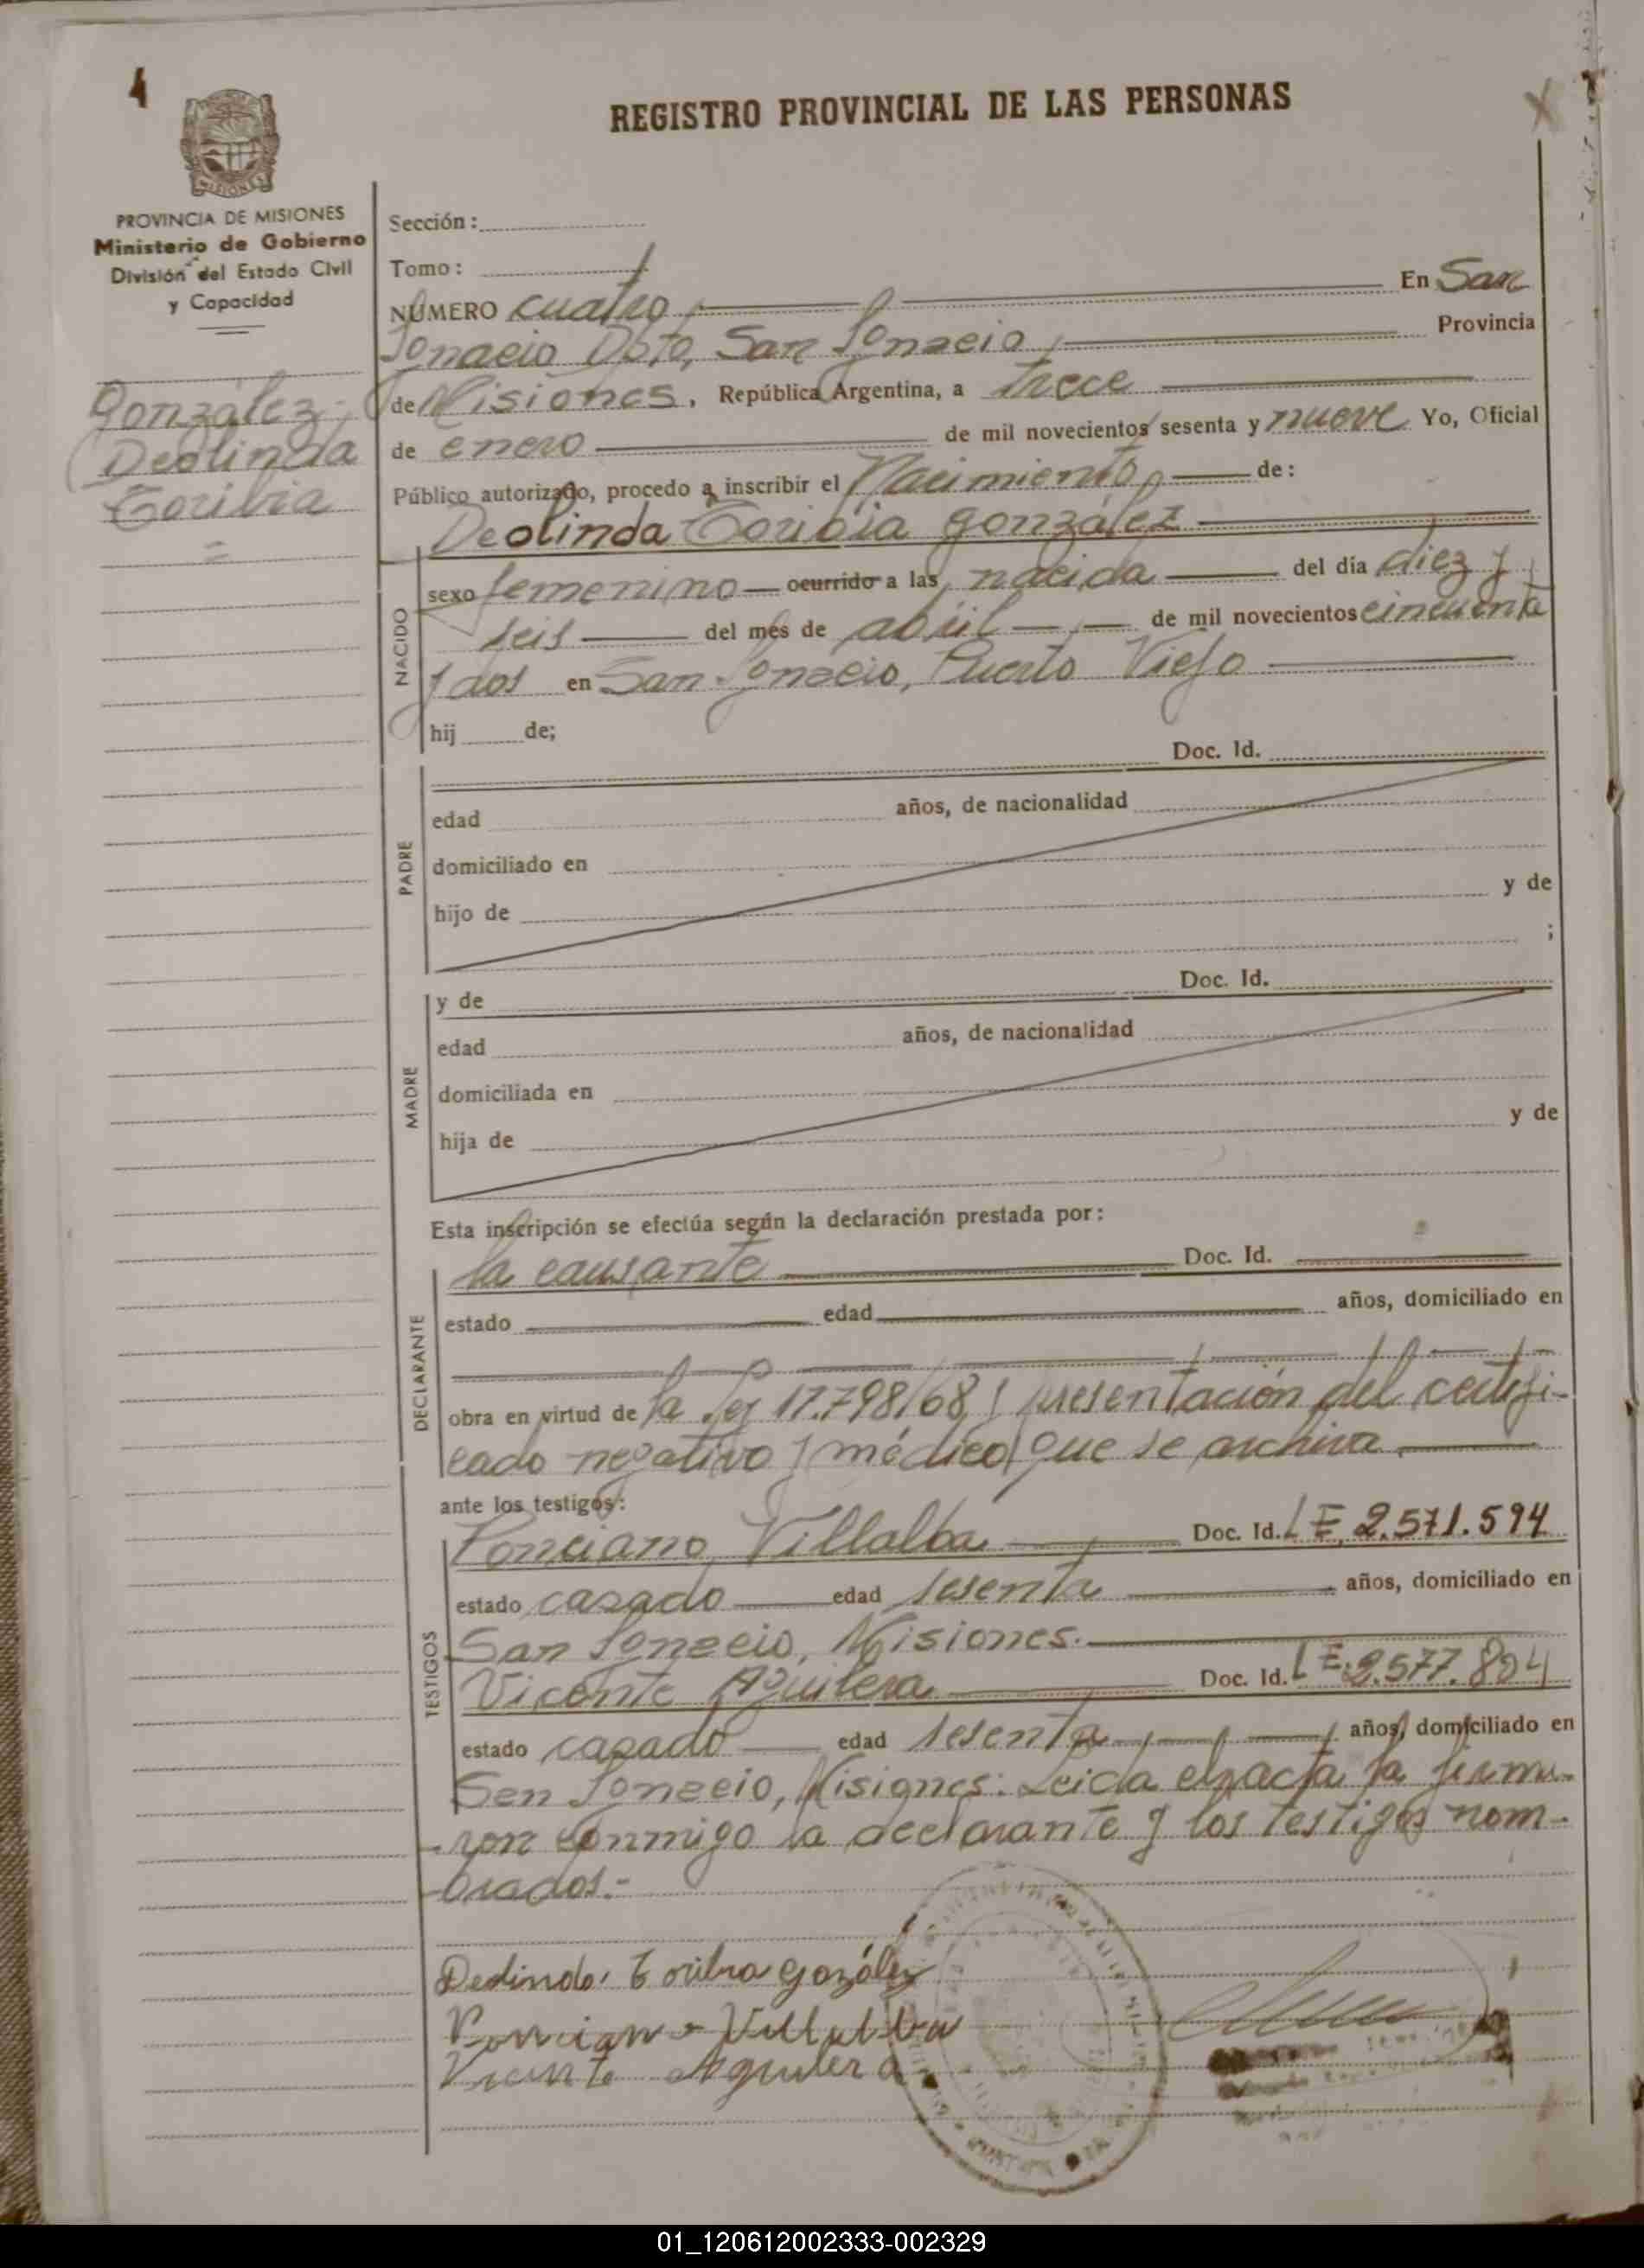 4
REGISTRO PROVINCIAL DE LAS PERSONAS
X
MISIONES
PROVINCIA DE MISIONES
Ministerio de Gobierno
División del Estado Civil
y Capacidad
González
Deolinda
Toribia
=
Sección:
Tomo:
NÚMERO cuatro En San
Ignacio Dpto, San Ignacio, Provincia
de Misiones, República Argentina, a trece
de enero de mil novecientos sesenta y nueve Yo, Oficial
Público autorizado, procedo a inscribir el Nacimiento de:
Deolinda Toribia González
NACIDO
sexo femenino ocurrido a las nacida del día diez y
seis del mes de abril de mil novecientos cincuenta
y dos en San Ignacio, Puerto Viejo
hij de;
PADRE
Doc. Id.
edad años, de nacionalidad
domiciliado en
hijo de y de
;
MADRE
y de Doc. Id.
edad años, de nacionalidad
domiciliada en
hija de y de
Esta inscripción se efectúa según la declaración prestada por:
DECLARANTE
la causante Doc. Id.
estado edad años, domiciliado en
obra en virtud de la Ley 17.798/68 y presentación del certifi-
cado negativo y médico que se archiva
ante los testigos:
TESTIGOS
Ponciano Villalba Doc. Id. L E 2.571.594
estado casado edad sesenta años, domiciliado en
San Ignacio, Misiones.
Vicente Aguilera Doc. Id. L E. 2.577.804
estado casado edad sesenta años, domiciliado en
San Ignacio, Misiones. Leida el acta la firma-
ron conmigo la declarante y los testigos nom-
brados.-
Deolinda Toribia gozález
Ponciano Villalba
Vicente Aguilera
01_120612002333-002329